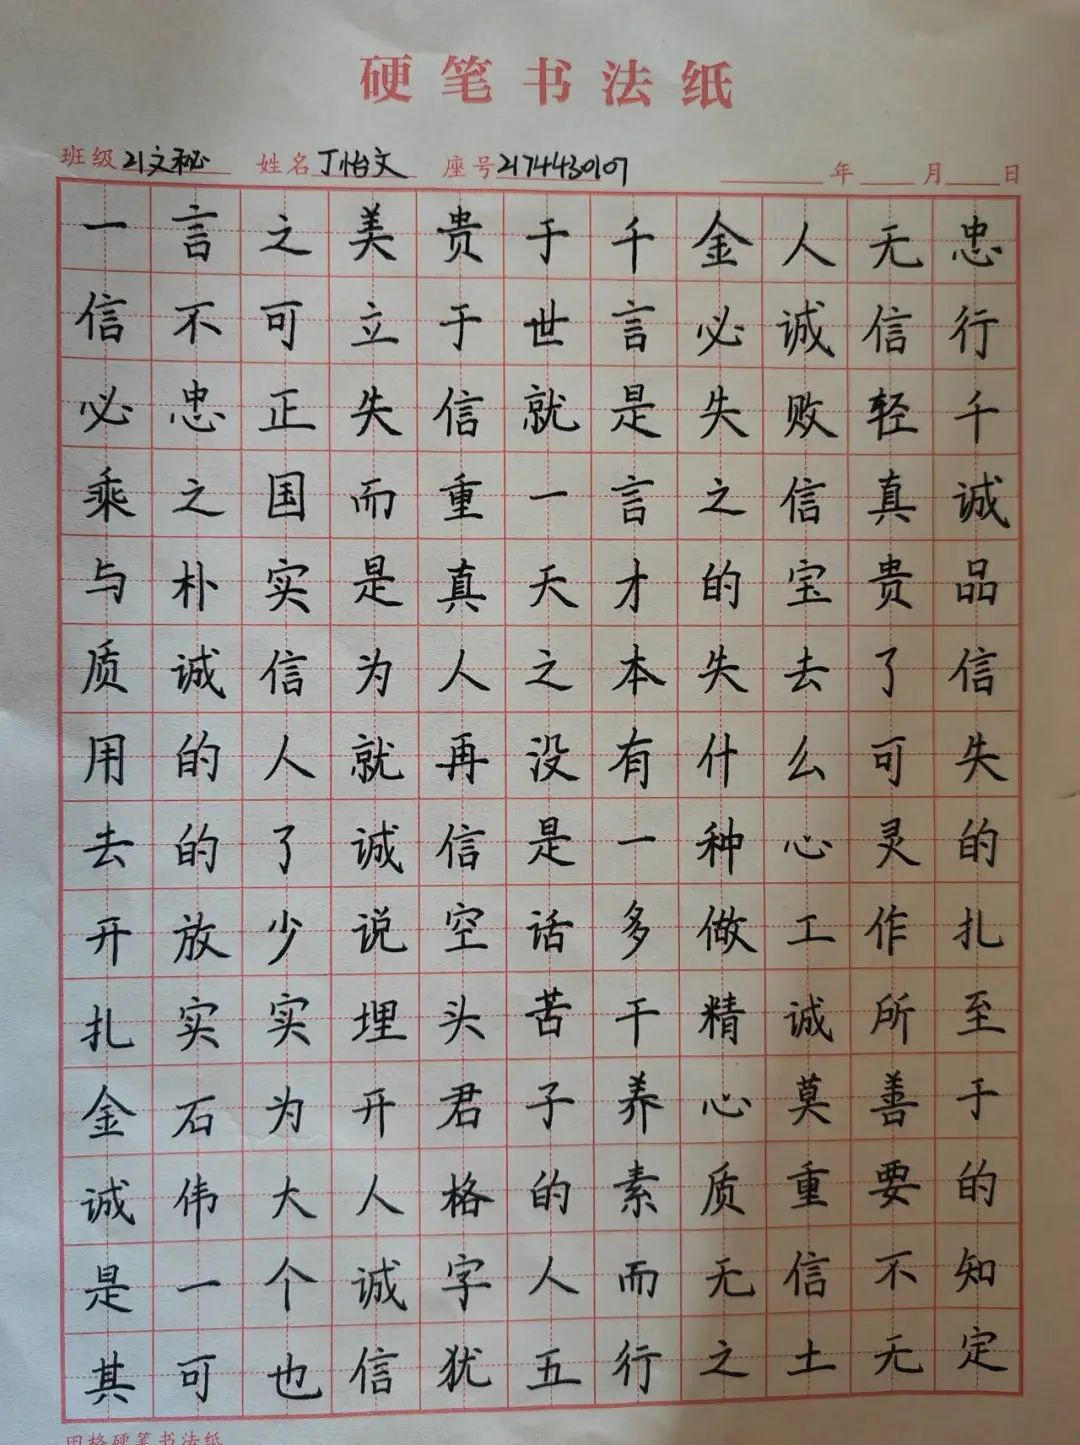 硬笔书法纸
班级 21文秘 姓名 丁怡文 座号 2174430107 年 月 日
一言之美贵于千金人无忠
信不可立于世言必诚信行
必忠正失信就是失败轻千
乘之国而重一言之信真诚
与朴实是真天才的宝贵品
质诚信为人之本失去了信
用的人就再没有什么可失
去的了诚信是一种心灵的
开放少说空话多做工作扎
扎实实埋头苦干精诚所至
金石为开君子养心莫善于
诚伟大人格的素质重要的
是一个诚字人而无信不知
其可也信犹五行之土无定
田格硬笔书法纸